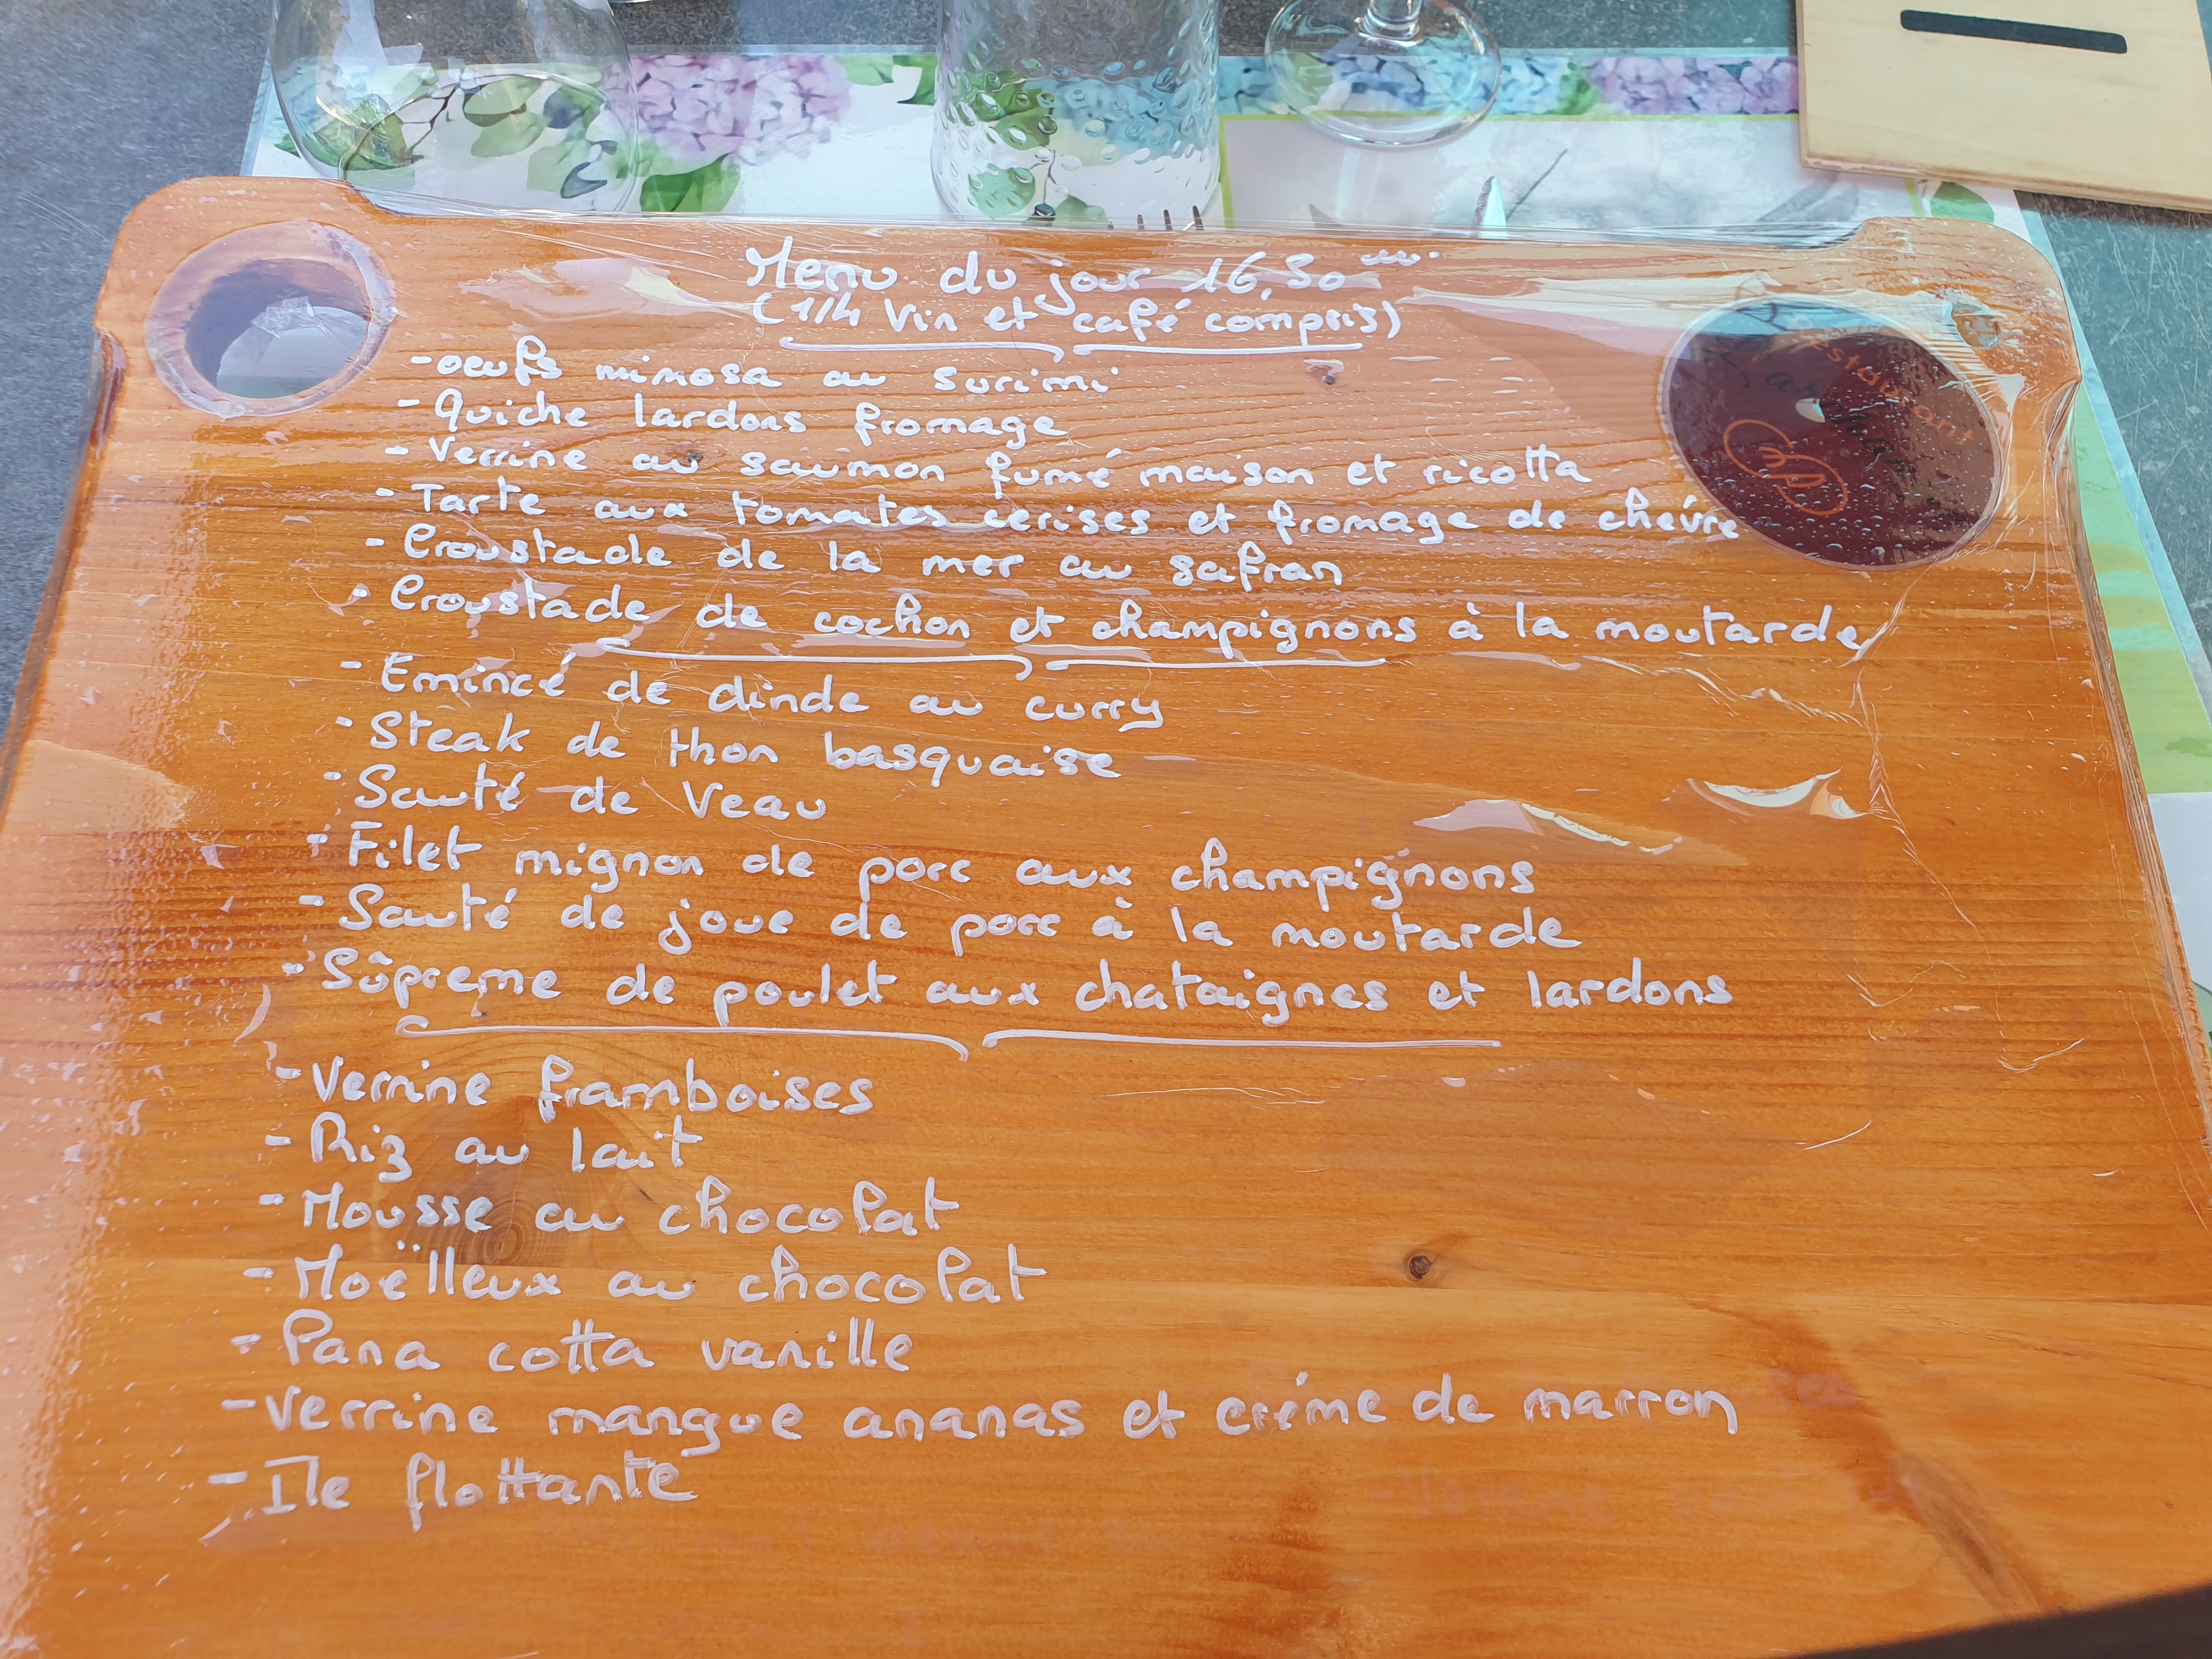 Menu du jour 16,50
(1/4 Vin et café compris)
- oeufs mimosa au surimi
- Quiche lardons fromage
- Verrine au saumon fumé maison et ricotta
- Tarte aux tomates cerises et fromage de chévre
- Croustade de la mer au safran
- Croustade de cochon et champignons à la moutarde
- Emincé de dinde au curry
- Steak de thon basquaise
- Sauté de Veau
- Filet mignon de porc aux champignons
- Sauté de joue de porc à la moutarde
- Sûpreme de poulet aux chataignes et lardons
- Verrine framboises
- Riz au lait
- Mousse au chocolat
- Moëlleux au chocolat
- Pana cotta vanille
- Verrine mangue ananas et créme de marron
- Ile flottante